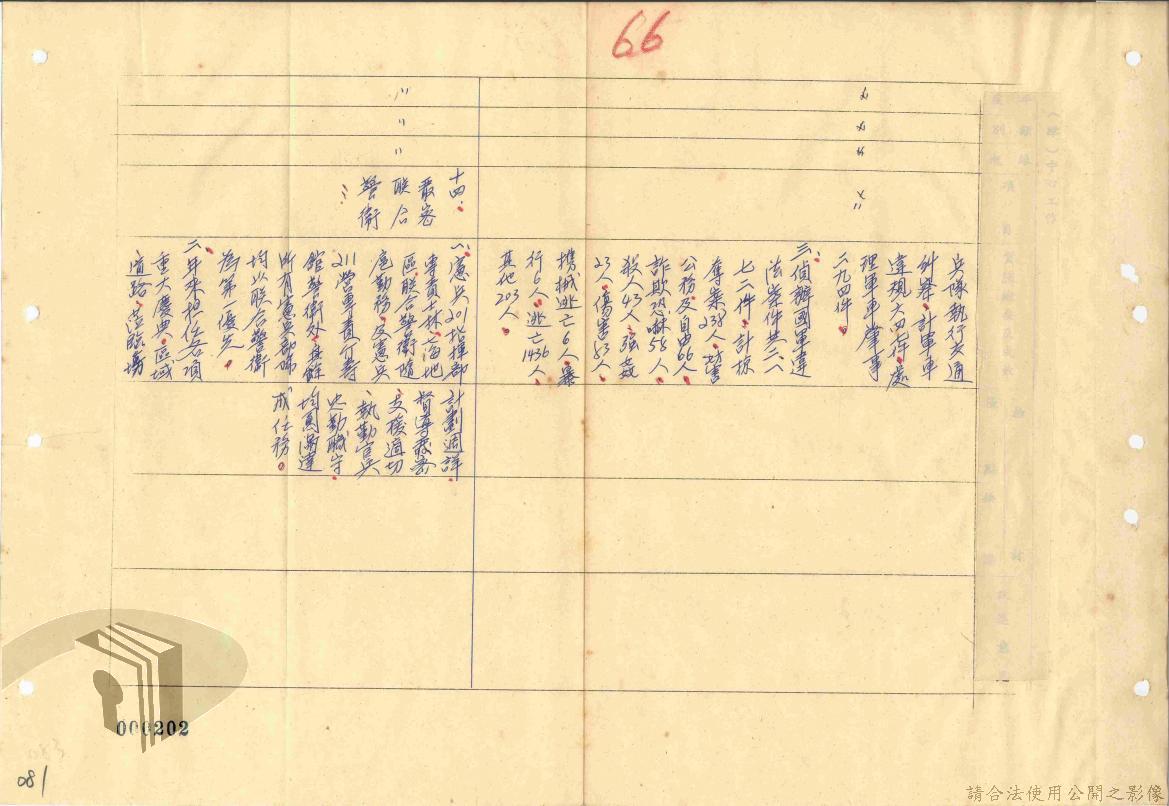 66
〃
〃
〃
〃
兵隊執行交通
糾察、計軍車
違規六四七件、處
理軍車肇事
二九四件。
三、偵辦國軍違
法案件共二八
七二件、計掠
奪案238人、妨害
公務及自由66人、
詐欺恐嚇58人、
殺人43人、強姦
23人、傷害83人、
攜械逃亡6人、暴
行6人、逃亡1436人、
其他203人。
〃
〃
〃
十四、
嚴密
联合
警衛
一、憲兵201指揮部
專責士林、
區、联合警衛隨
扈勤務、及憲兵
211營專責
館警衛外、其餘
所有憲兵部隊
均以联合警衛
為第一優先。
二、年來担任各項
重大慶典、區域
道路、蒞臨場
計劃週詳、
督導嚴密
、支援適切
、執勤官兵
忠勤職守、
均圓滿達
成任務。
000202
081
請合法使用公開之影像